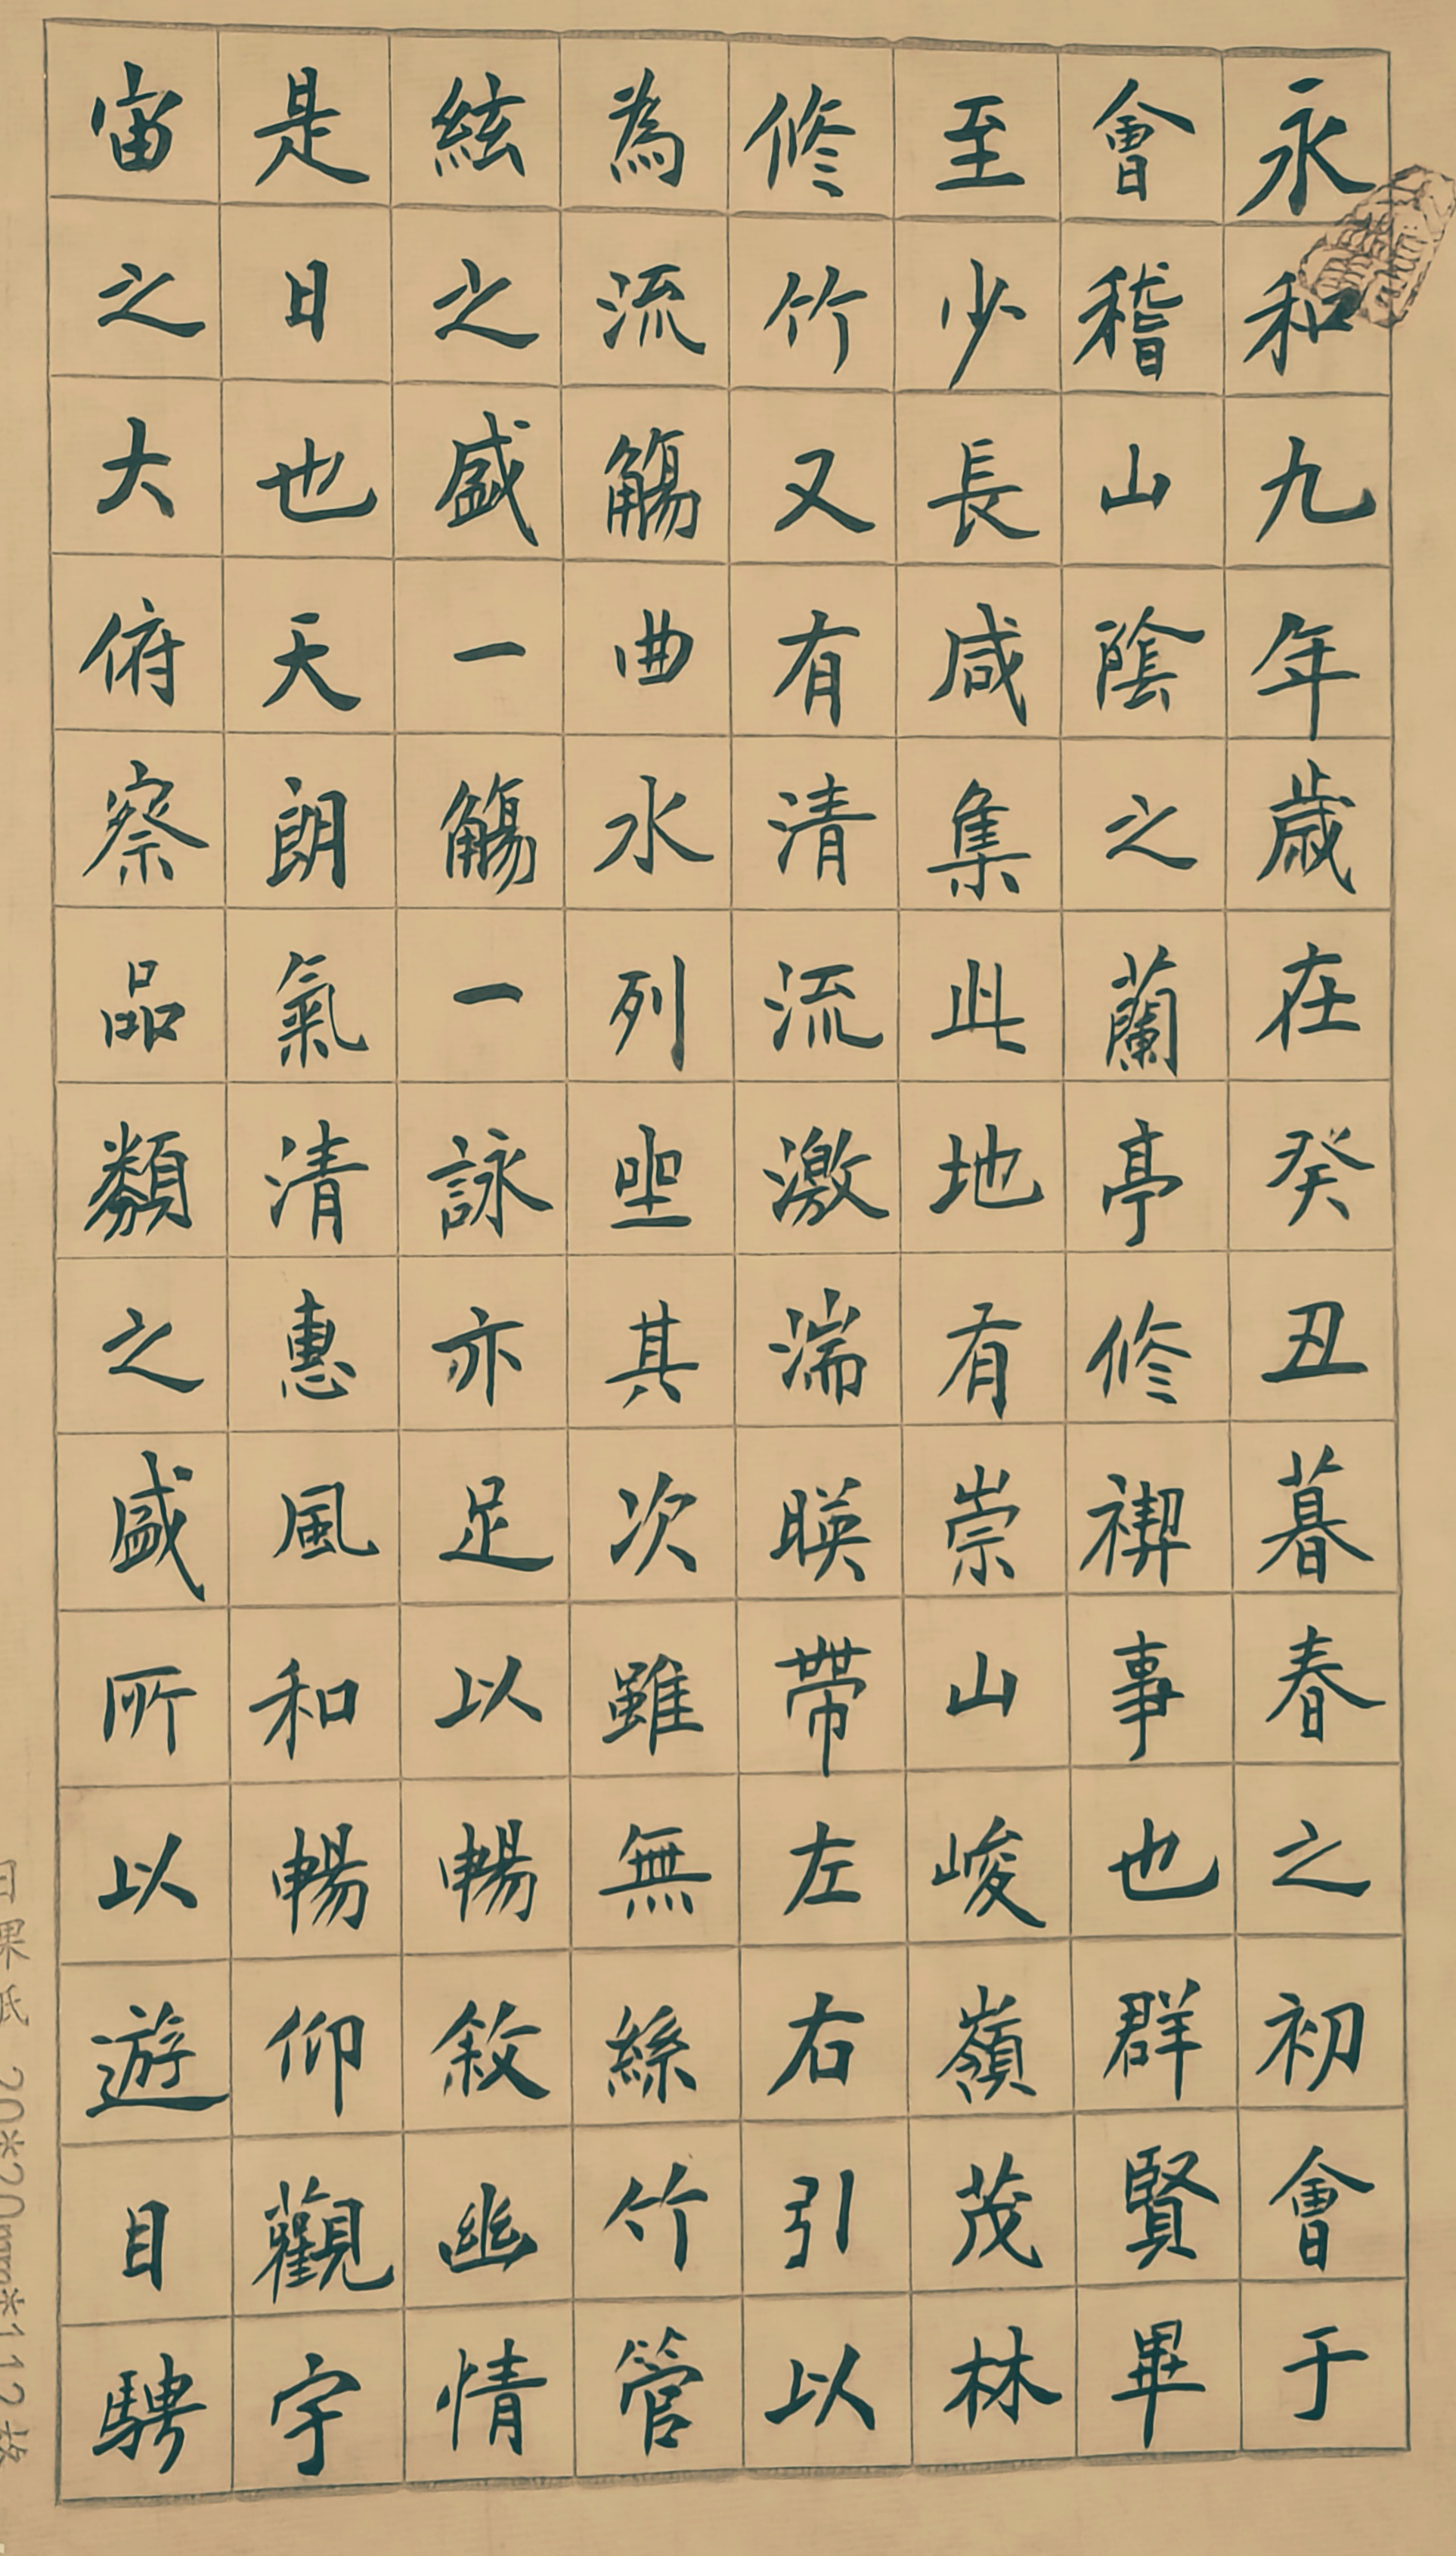 永和九年歲在癸丑暮春之初會于
會稽山陰之蘭亭修禊事也群賢畢
至少長咸集此地有崇山峻嶺茂林
修竹又有清流激湍暎帶左右引以
為流觴曲水列坐其次雖無絲竹管
絃之盛一觴一詠亦足以暢敘幽情
是日也天朗氣清惠風和暢仰觀宇
宙之大俯察品類之盛所以遊目騁
20*20mm*112